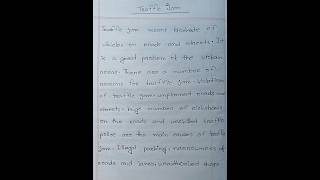 Traffic Jam
Traffic jam means blockade of
vehicles on roads and streets. It
is a great problem of the urban
areas. There are a number of
reasons for traffic jam. violation
of traffic jam. unplanned roads and
streets. huge number of rickshaws
on the roads and unskilled traffic
police are the main causes of traffic
jam. Illegal parking. narrowness of
roads and lanes. unauthorized shops